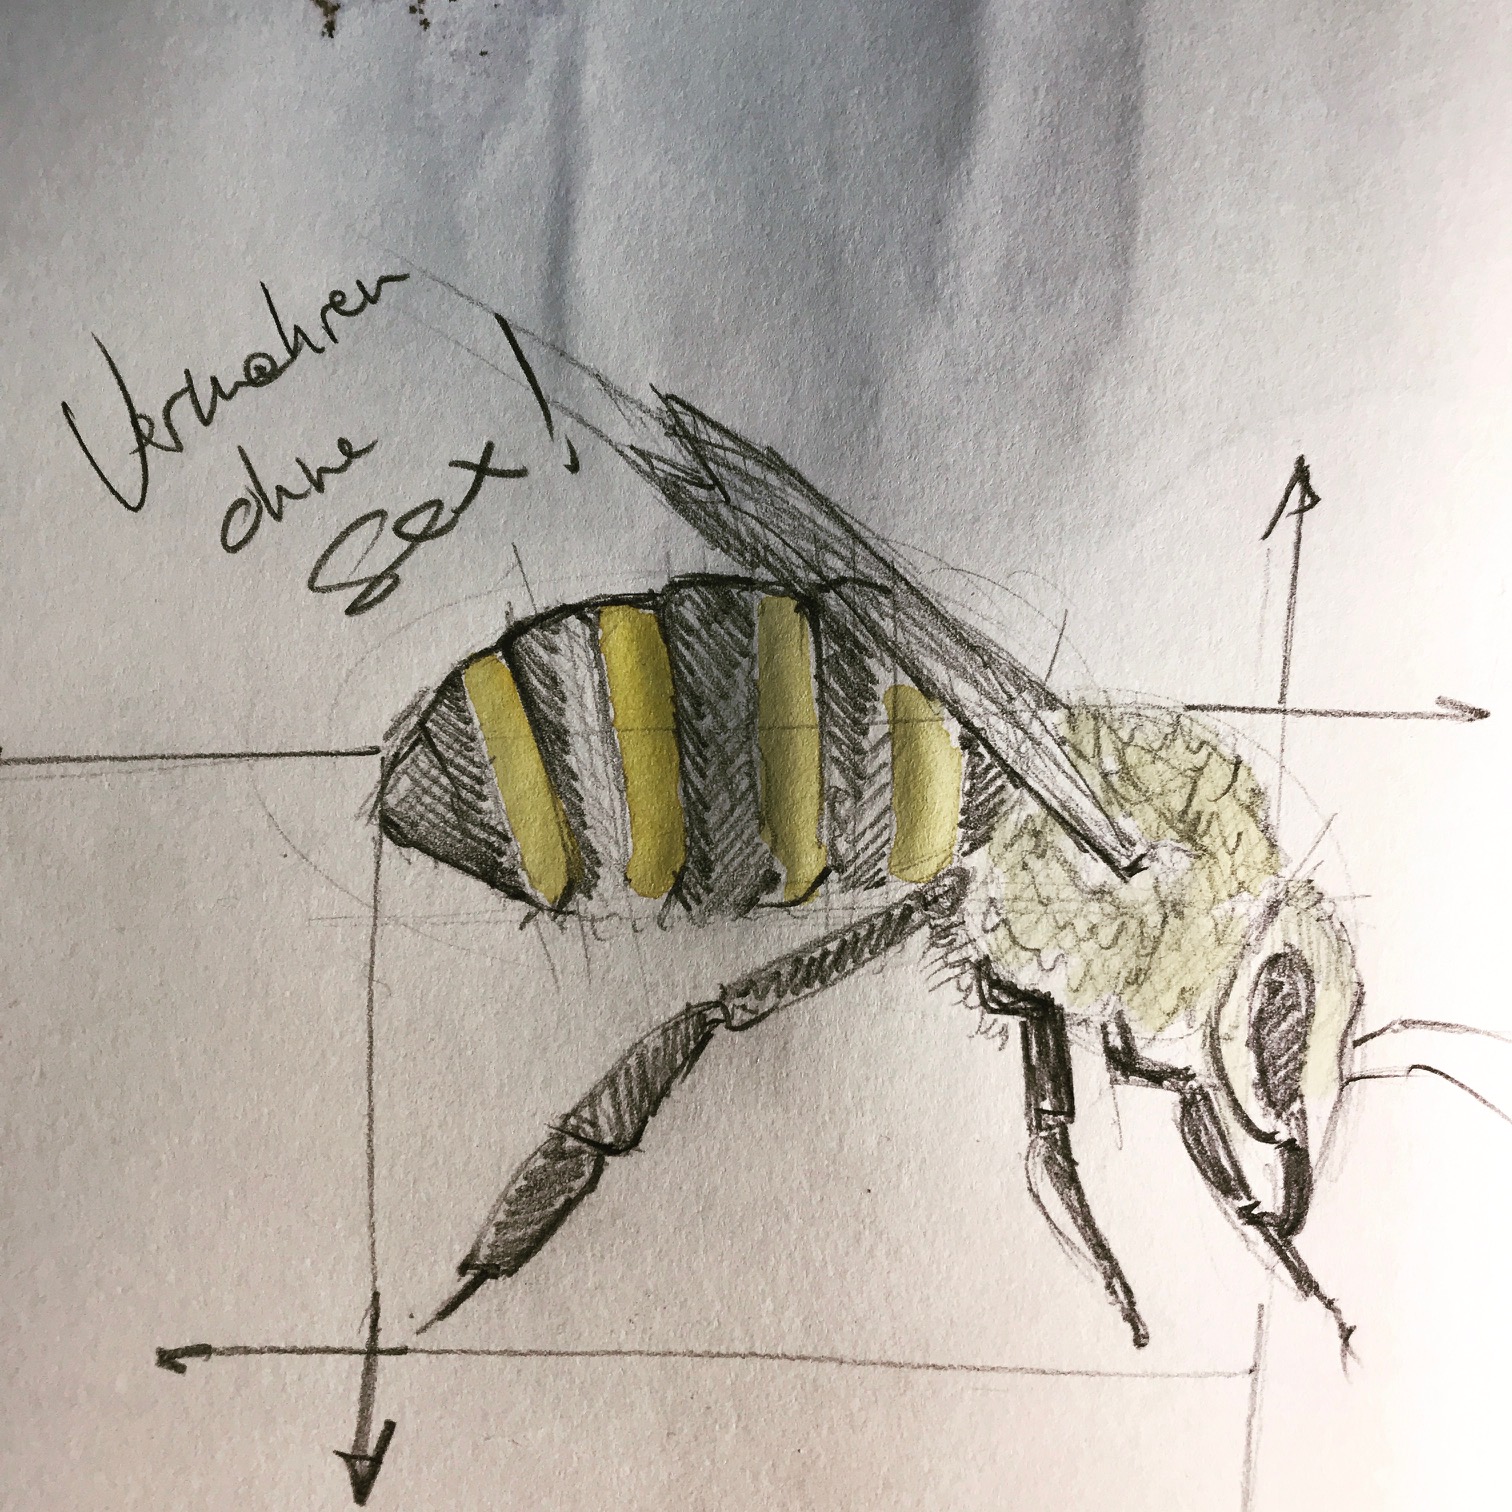 Vermehren
ohne
Sex!